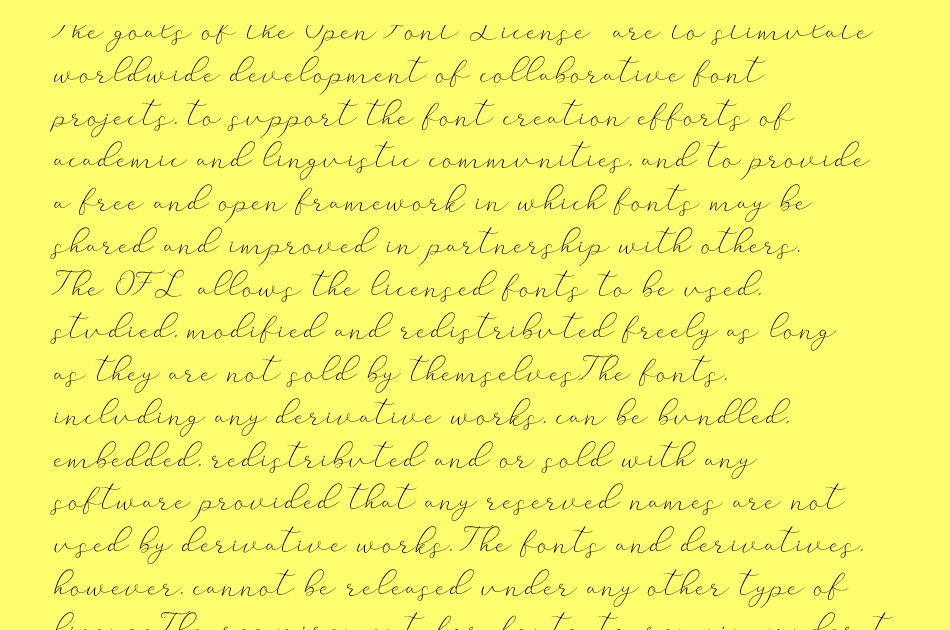 The goals of the Open Font License are to stimulate
worldwide development of collaborative font
projects, to support the font creation efforts of
academic and linguistic communities, and to provide
a free and open framework in which fonts may be
shared and improved in partnership with others.
The OFL allows the licensed fonts to be used,
studied, modified and redistributed freely as long
as they are not sold by themselves.The fonts,
including any derivative works, can be bundled,
embedded, redistributed and or sold with any
software provided that any reserved names are not
used by derivative works. The fonts and derivatives,
however, cannot be released under any other type of
license.The requirement for fonts to remain under t